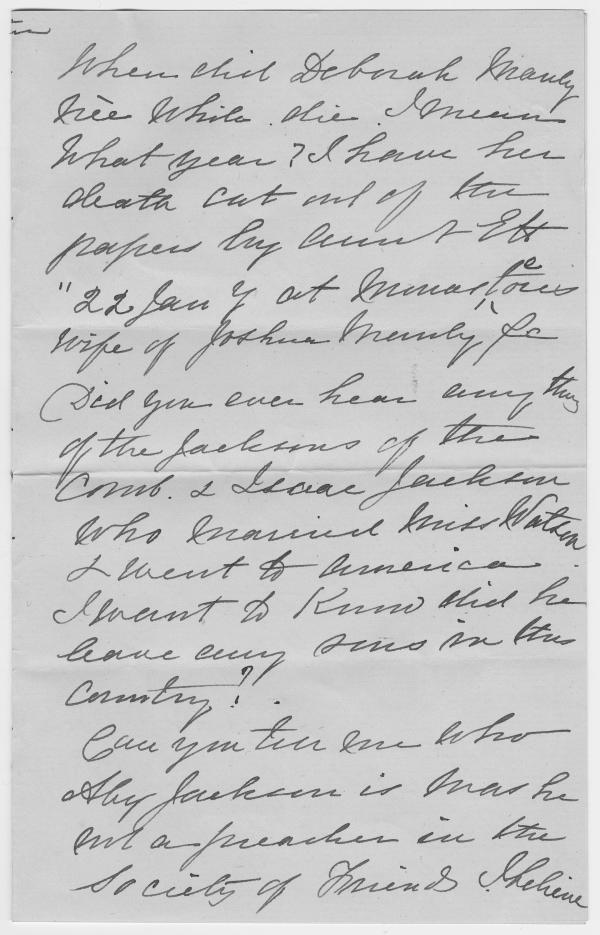 When did Deborah Manly
née White die I mean
What year? I have her
death cut out of the
papers by Aunt Ett
"22 Jany at
wife of Joshua Manly, &c
Did you ever hear any thing
of the Jacksons of the
Comb. & Isaac Jackson
who married Miss Watson
& went to America
I want to know did he
leave any sons in this
Country?.
Can you tell me who
Aby Jackson is was he
not a preacher in the
Society of Friends I believe